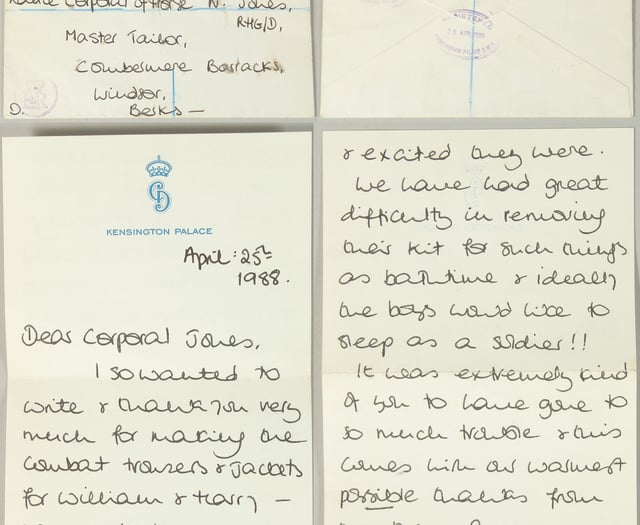 Corporal of Horse N. Jones,
RHG/D,
Master Tailor,
Combermere Barracks,
Windsor,
Berks —
D.
KENSINGTON PALACE
April: 25th
1988.
Dear Corporal Jones,
I so wanted to
write & thank you very
much for making the
combat trousers & jackets
for William & Harry —
& excited they were.
We have had great
difficulty in removing
their kit for such things
as bathtime & ideally
the boys would like to
sleep as a soldier!!
It was extremely kind
of you to have gone to
so much trouble & this
comes with our warmest
possible thanks from